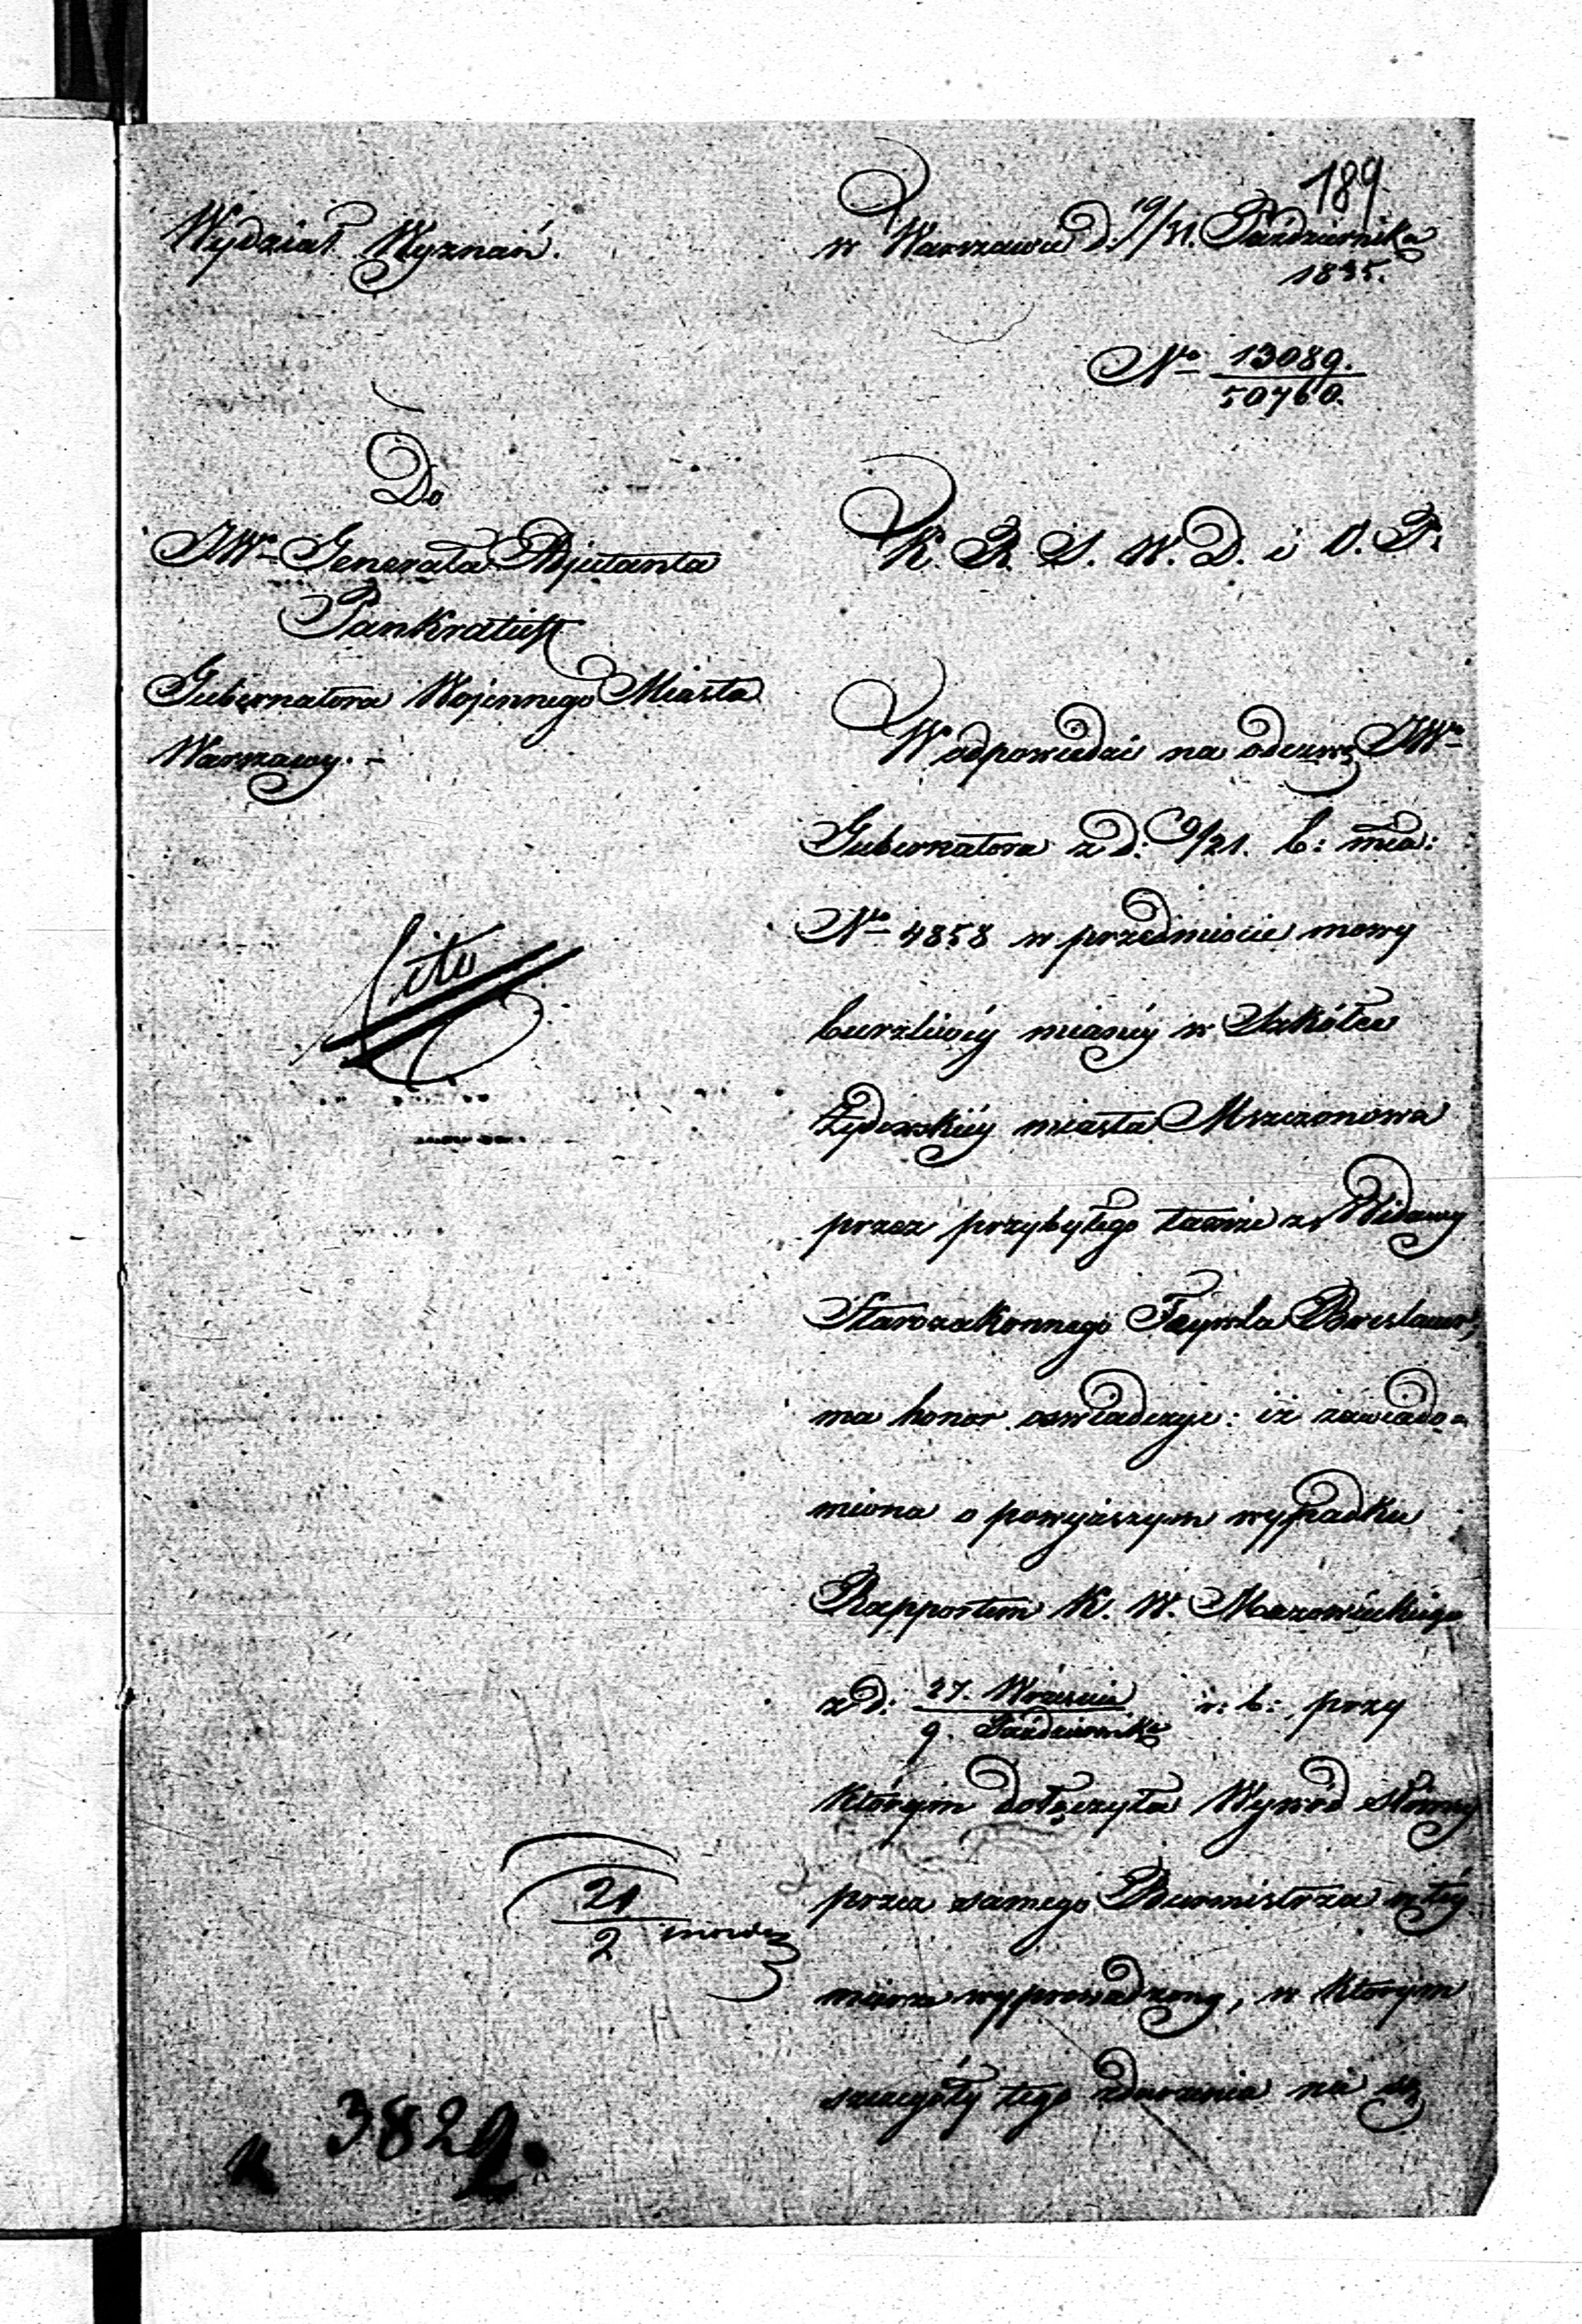 189
Wydział Wyznań.
w Warszawie d: 19/31. Października
1835.
No 13089.
50760.
Do
JWo Generała Adjutanta
Pankratiew
Gubernatora Wojennego Miasta
Warszawy. -
K. R. S. W. D. i O. P.
W odpowiedzi na odezwę JWo
Gubernatora z d: 9/21. b: mca:
No 4858 w przedmiocie mowy
burzliwéy mianéy w Szkółce
Żydowskiéy miasta Mszczonowa
przez przybyłego tamże z Widawy
Starozakonnego Faywla Breslauer,
ma honor oswiadczyć: iż zawiado-
miona o powyższym wypadku
Rapportem K. W. Mazowieckiego
z d: 27. Września r: b: przy
9. Października
którym dołączyła Wywód słowny
przez samego Burmistrza w téy
mierze wyprowadzony, w którym
szczegóły tego zdarzenia nie są
21
2
3829.